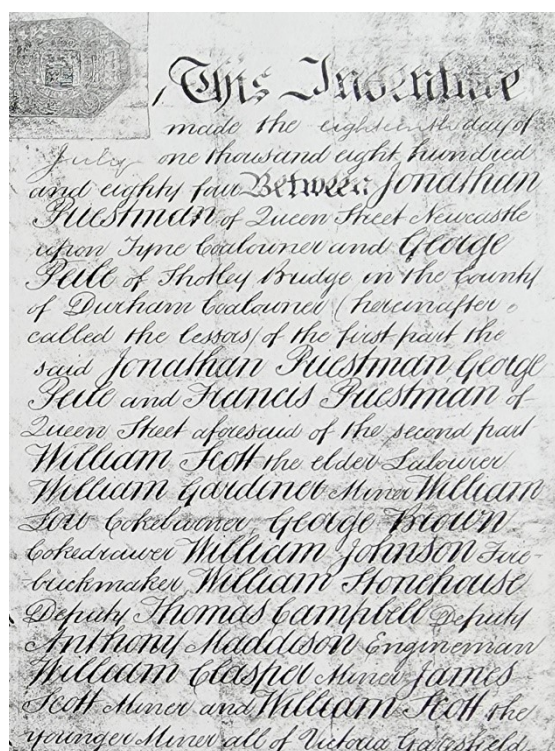 This Indenture
made the eighteenth day of
July one thousand eight hundred
and eighty four Between Jonathan
Priestman of Queen Street Newcastle
upon Tyne Coalowner and George
Peile of Shotley Bridge in the County
of Durham Coalowner (hereinafter
called the lessors) of the first part the
said Jonathan Priestman George
Peile and Francis Priestman of
Queen Street aforesaid of the second part
William Scott the elder Labourer
William Gardiner Miner William
Low Cokeburner George Brown
Cokedrawer William Johnson Fire-
brickmaker William Stonehouse
Deputy Thomas Campbell Deputy
Anthony Maddison Engineman
William Clasper Miner James
Scott Miner and William Scott the
younger Miner all of Victoria Garesfield